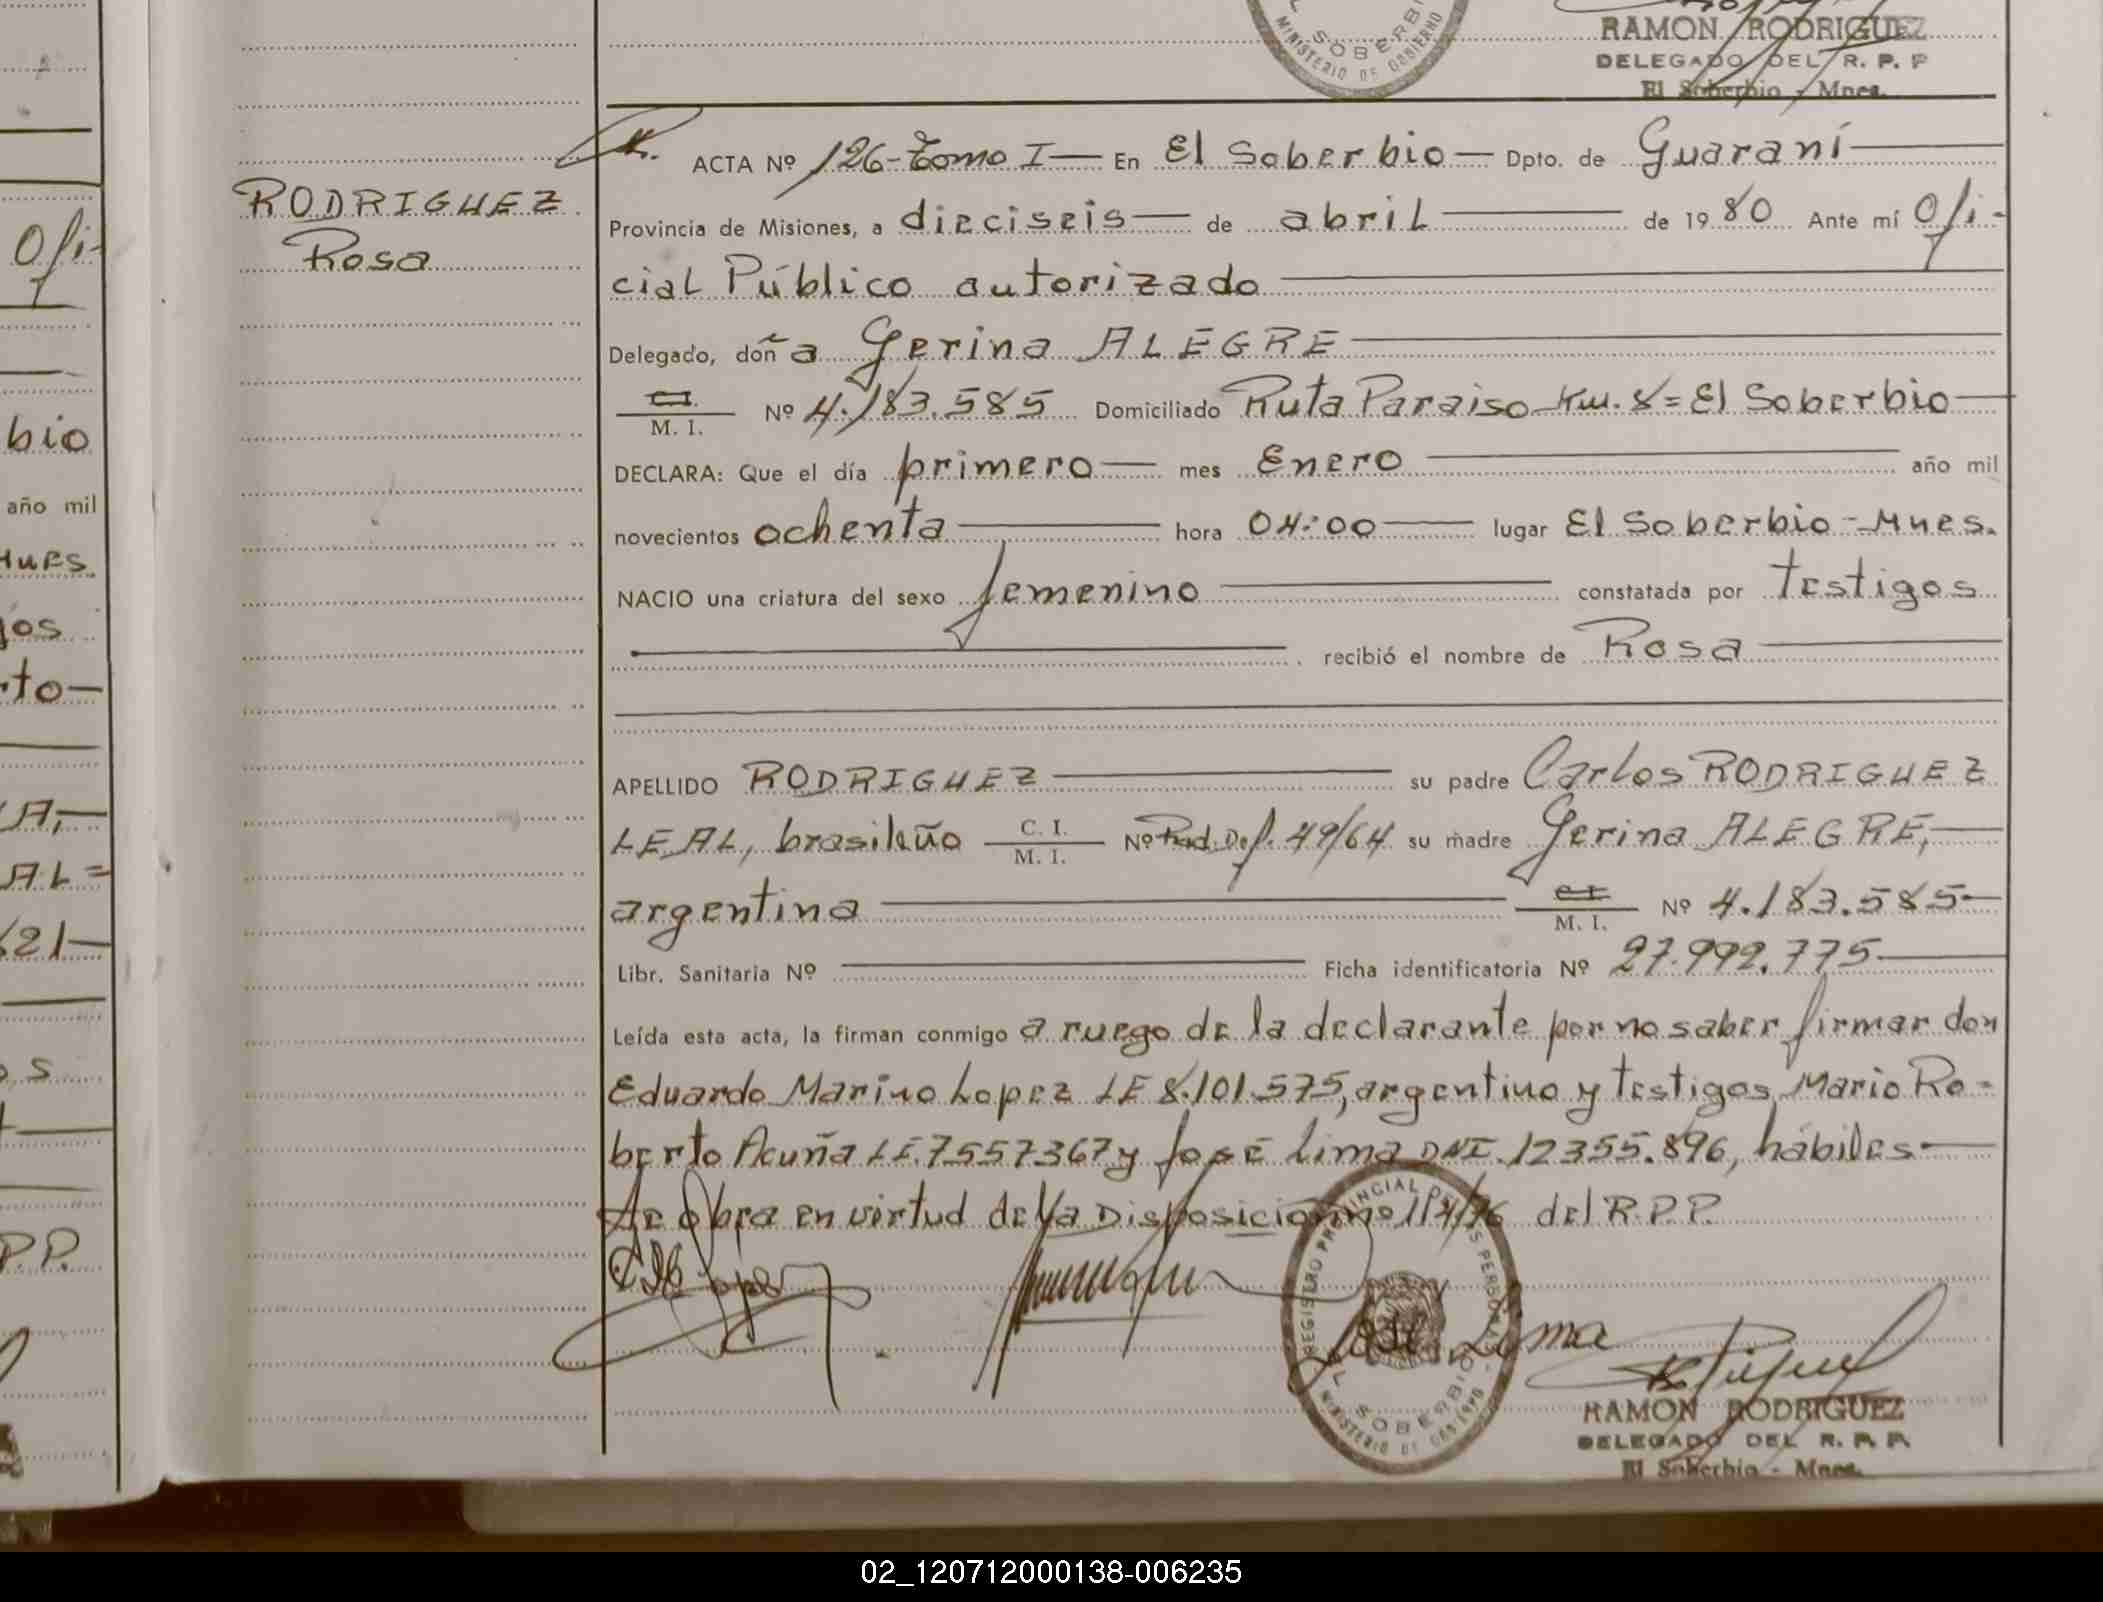 SOBERBIO
MINISTERIO DE GOBIERNO
RAMON RODRIGUEZ
DELEGADO DEL R. P. P
El Soberbio - Mnes.
RODRIGUEZ
Rosa
ACTA Nº 126-Tomo I— En El Soberbio— Dpto. de Guaraní—
Provincia de Misiones, a dieciseis— de abril— de 1980 Ante mí Ofi-
cial Público autorizado—
Delegado, doña Gerina ALEGRE—
C.I. M. I. Nº 4.183.585 Domiciliado Ruta Paraiso Km. 8= El Soberbio—
DECLARA: Que el día primero— mes Enero— año mil
novecientos ochenta— hora 04:00— lugar El Soberbio-Mnes.
NACIO una criatura del sexo femenino— constatada por testigos
— recibió el nombre de Rosa—
APELLIDO RODRIGUEZ— su padre Carlos RODRIGUEZ
LEAL, brasileño— C. I. M. I. Nº Rad.Def. 49/64 su madre Gerina ALEGRE,—
argentina— C.I. M. I. Nº 4.183.585—
Libr. Sanitaria Nº — Ficha identificatoria Nº 27.992.775—
Leída esta acta, la firman conmigo a ruego de la declarante por no saber firmar don
Eduardo Marino Lopez LE 8.101.575, argentino y testigos, Mario Ro=
berto Acuña LE.7557367 y José Lima DNI.12355.896, hábiles—
Se Obra en virtud de la Disposición nº 114/76 del R.P.P.
José Lima
REGISTRO PROVINCIAL DE LAS PERSONAS
EL SOBERBIO
MINISTERIO DE GOBIERNO
RAMON RODRIGUEZ
DELEGADO DEL R. P. P.
El Soberbio - Mnes.
Ofi-
bio
año mil
Mnes.
gos
rto—
AL=
621—
os
P.P.
02_120712000138-006235